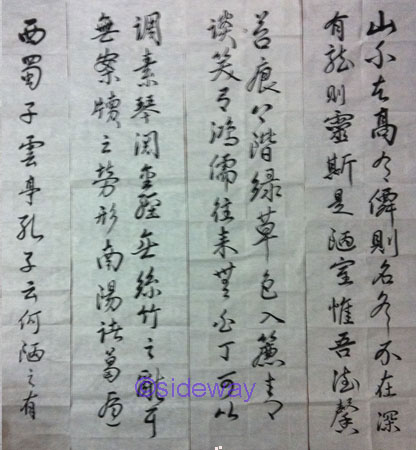 山不在高有僊則名水不在深
有龍則靈斯是陋室惟吾德馨
苔痕上階緑草色入簾青
談笑有鴻儒往来無白丁可以
調素琴閱金經無絲竹之亂耳
無案牘之勞形南陽諸葛廬
西蜀子雲亭孔子云何陋之有
@sideway